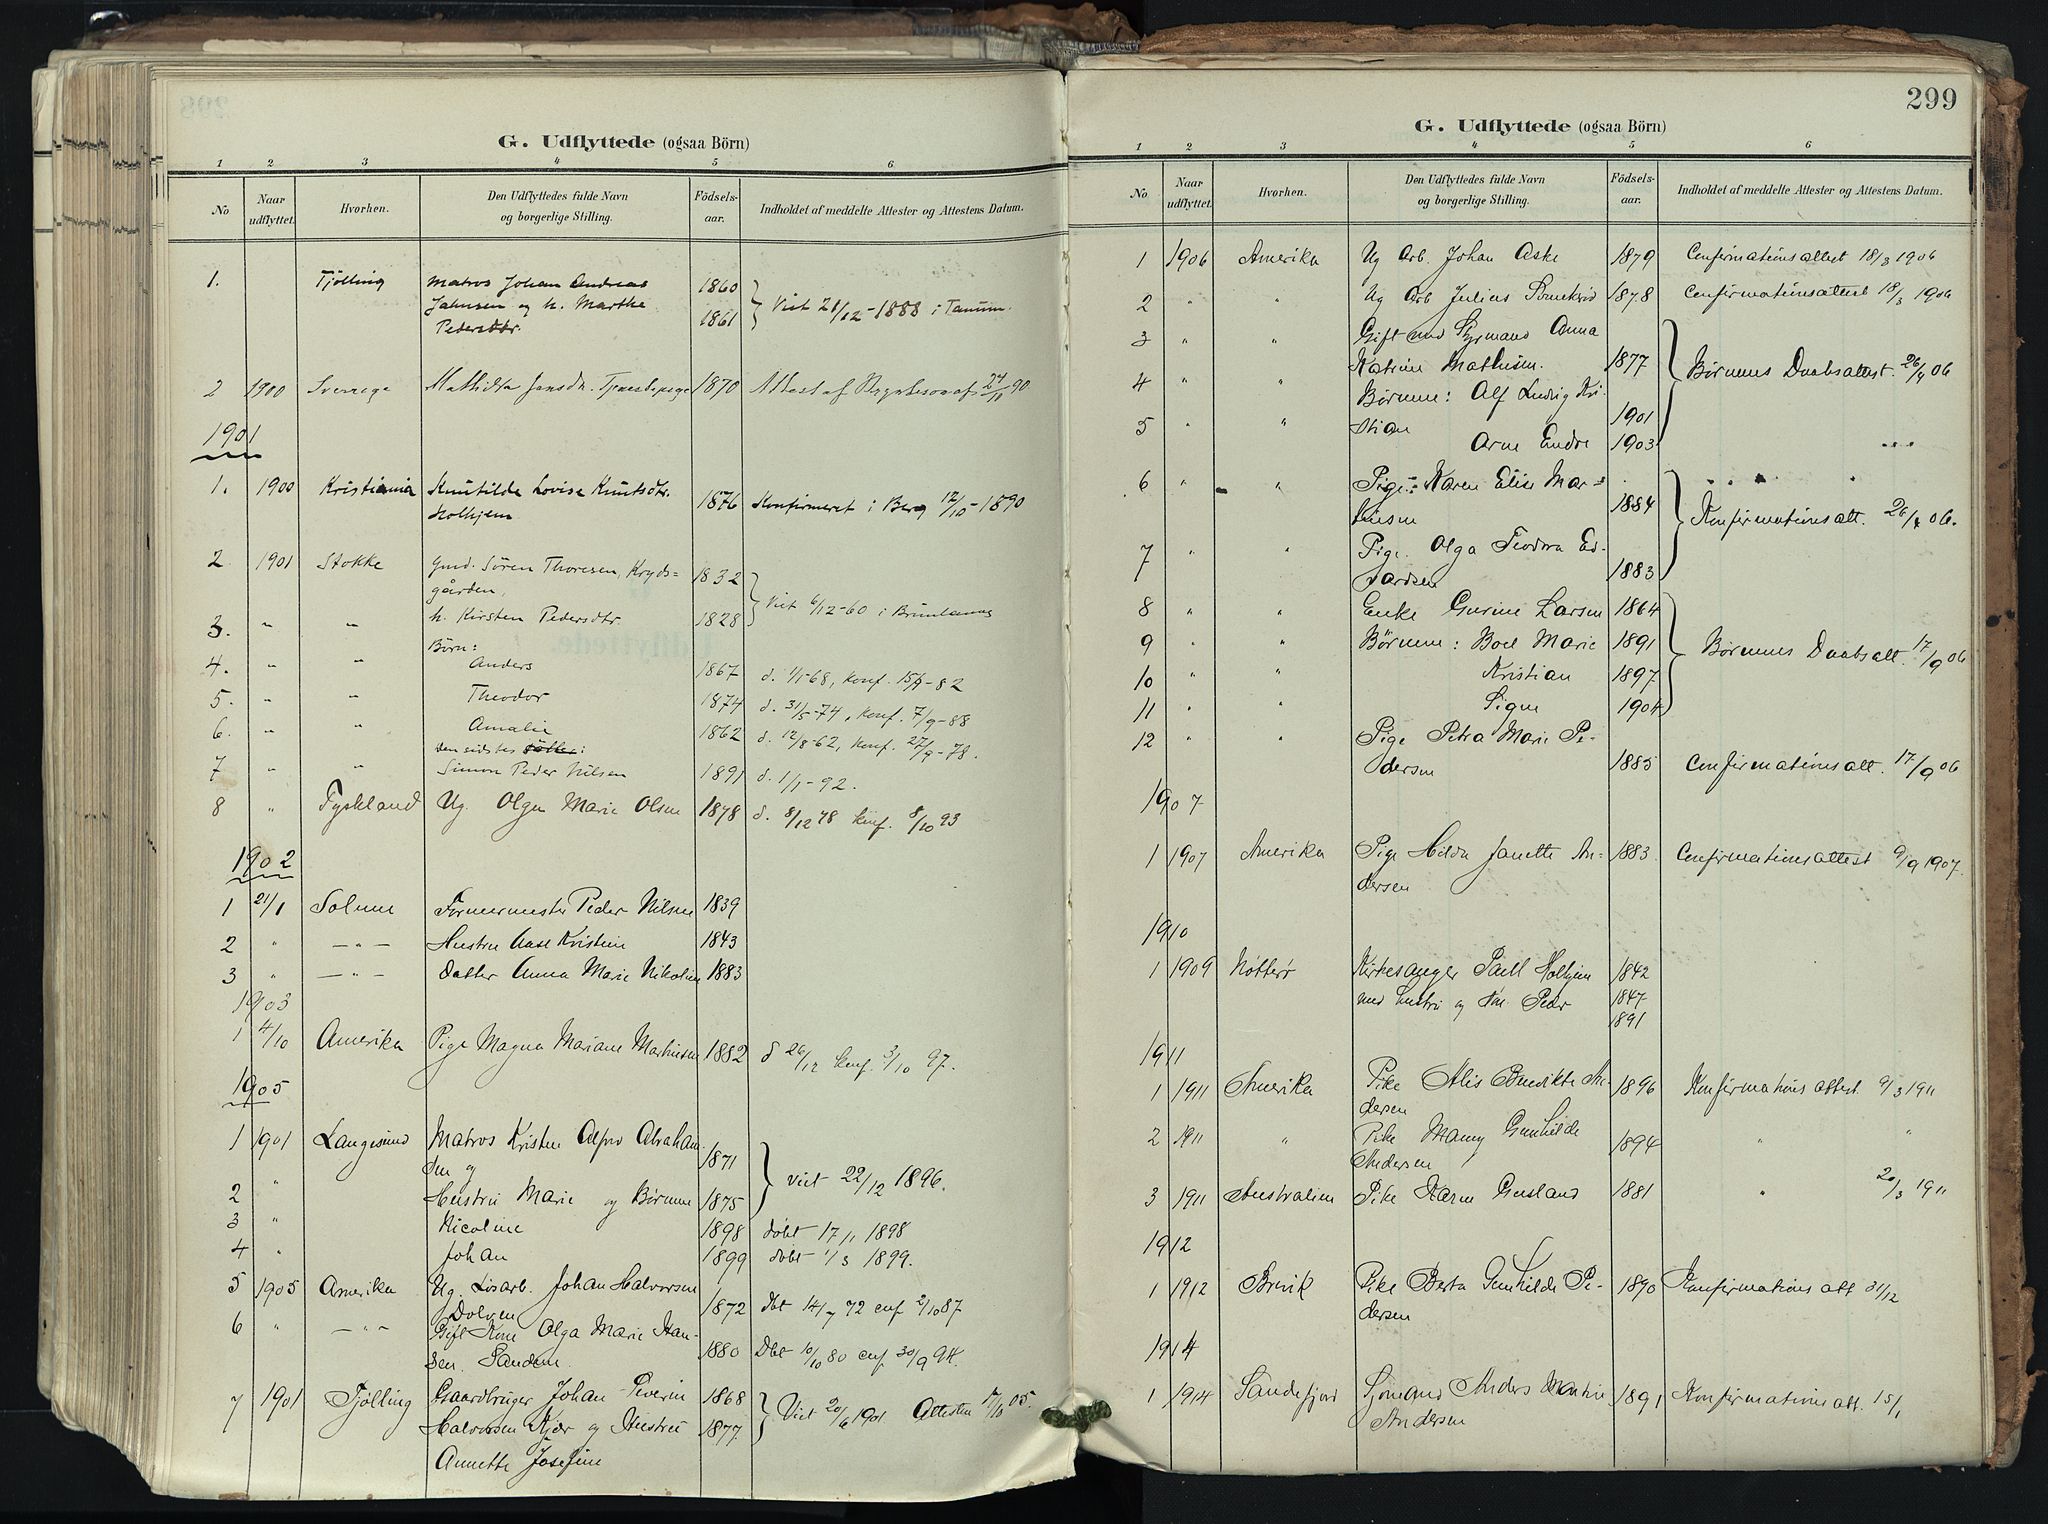 G. Udflyttede (ogsaa Börn)
1 2 3 4 5 6
No Naar udflyttet. Hvorhen. Den Udflyttedes fulde Navn og borgerlige Stilling. Födsels-aar. Indholdet af meddelte Attester og Attestens Datum.
1. Tjølling Matros Johan Andreas 1860
Jahnsen og h. Marthe 1861 Viet 21/12-1888 i Tanum.
Pedersdtr.
2 1900 Sverrige Mathilda Jansdtr. Tjenestepige 1870 Attest af 90
1901
1. 1900 Kristiania Knutilde Lovise Knutsdtr. 1876 Konfirmeret i Berg 12/10-1890
Holhjem
2 1901 Stokke Gmd. Sören Thoresen, Kryds= 1832
gården, Viet 6/12-60 i Brunlanæs
3. " " h. Kirsten Pedersdtr. 1828
Börn:
4. " " Anders 1867 d. 1/1-68, konf. 82
5. " " Theodor 1874 d. 31/5-74, konf. 7/9-88
6. " " Amalie 1862 d. 12/8-62, konf. 27/9-78.
den sidstes :
7 " " Simon Peder Nilsen 1891 d. 1/1-92.
8 " Tyskland Ug. Olga Marie Olsen 1878 d. 8/12 78 konf. 8/10 93
1902
1 21/1 Solum Formermester Peder Nilsen 1839
2 " — " — Hustru Aase Kristine 1843
3 " — " — Datter Anna Marie Nikoline 1883
1903
1 4/10 Amerika Pige Magna Mariane Mathisen 1882 d 26/12 konf. 3/10 97.
1905
1 1901 Langesund Matros Kristen Alfred Abraham
sen og 1871
2 " Hustru Marie og Börnene 1875 viet 22/12 1896.
3 " Nicoline 1898 döbt 17/1 1898
4 " Johan 1899 döbt 1/3 1899.
5 1905 Amerika Ug. Lösarb. Johan Halvorsen
Dolven 1872 Dbt 14/7 72 cnf 2/10 87
6 " — " — Gift Kone Olga Marie Han-
sen. Sanden. 1880 Dbt 10/10 80 cnf 30/9 94.
7 1901 Tjølling Gaardbruger Johan Severin 1868
Halvorsen Kjær og Hustru 1877 Viet 20/6 1901 Attesten /10 05.
Annette Josefine
299
G. Udflyttede (ogsaa Börn)
1 2 3 4 5 6
No Naar udflyttet. Hvorhen. Den Udflyttedes fulde Navn og borgerlige Stilling. Födsels-aar. Indholdet af meddelte Attester og Attestens Datum.
1 1906 Amerika Ug Arb. Johan Aske 1879 Confirmationsattest 18/3 1906
2 " " Ug Arb Julius 1878 Confirmationsattest 18/3 1906
3 " " Gift med Styrmand Anna
Katrine Mathisen. 1877 Børnenes Daabsattest. 26/4 06
4 " " Børnene: Alf Ludvig Kri-
stian 1901
5 " " Arne Endre 1903
6 " " Pige: Karen Elise Mar=
tinsen 1884 Konfirmationsatt. 26/4 06.
7 " " Pige. Olga Teodora Ed-
vardsen 1883
8 " " Enke Gurine Larsen 1864
9 " " Børnene: Boel Marie 1891 Børnenes Daabsatt. 17/9 06
10 " " Kristian 1897
11 " " Signe 1904
12 " " Pige Petra Marie Pe-
dersen 1885 Confirmationsatt. 17/9 06
1907
1 1907 Amerika Pige Hilda Janette An= 1883. Confirmationsattest 9/9 1907.
dersen
1910
1 1909 Nötterö Kirkesanger Paul Holhjem 1842
med hustru og sön Peder 1847
1891
1911
1 1911 Amerika Pike Alis Benedikte An 1896 Konfirmations attest 9/3 1911
dersen
2 1911 " Pike Mamy Gunhilde 1894 " "
Andersen
3 1911 Australien Pike Karen Gusland 1881 " 20/3 1911
1912
1 1912 Brevik Pike Berta Gunhilde Pe- 1890 Konfirmations att 31/12
dersen
1914
1 1914 Sandefjord Sjömand Anders Martin 1891 Konfirmationsatt. 15/1
Andersen